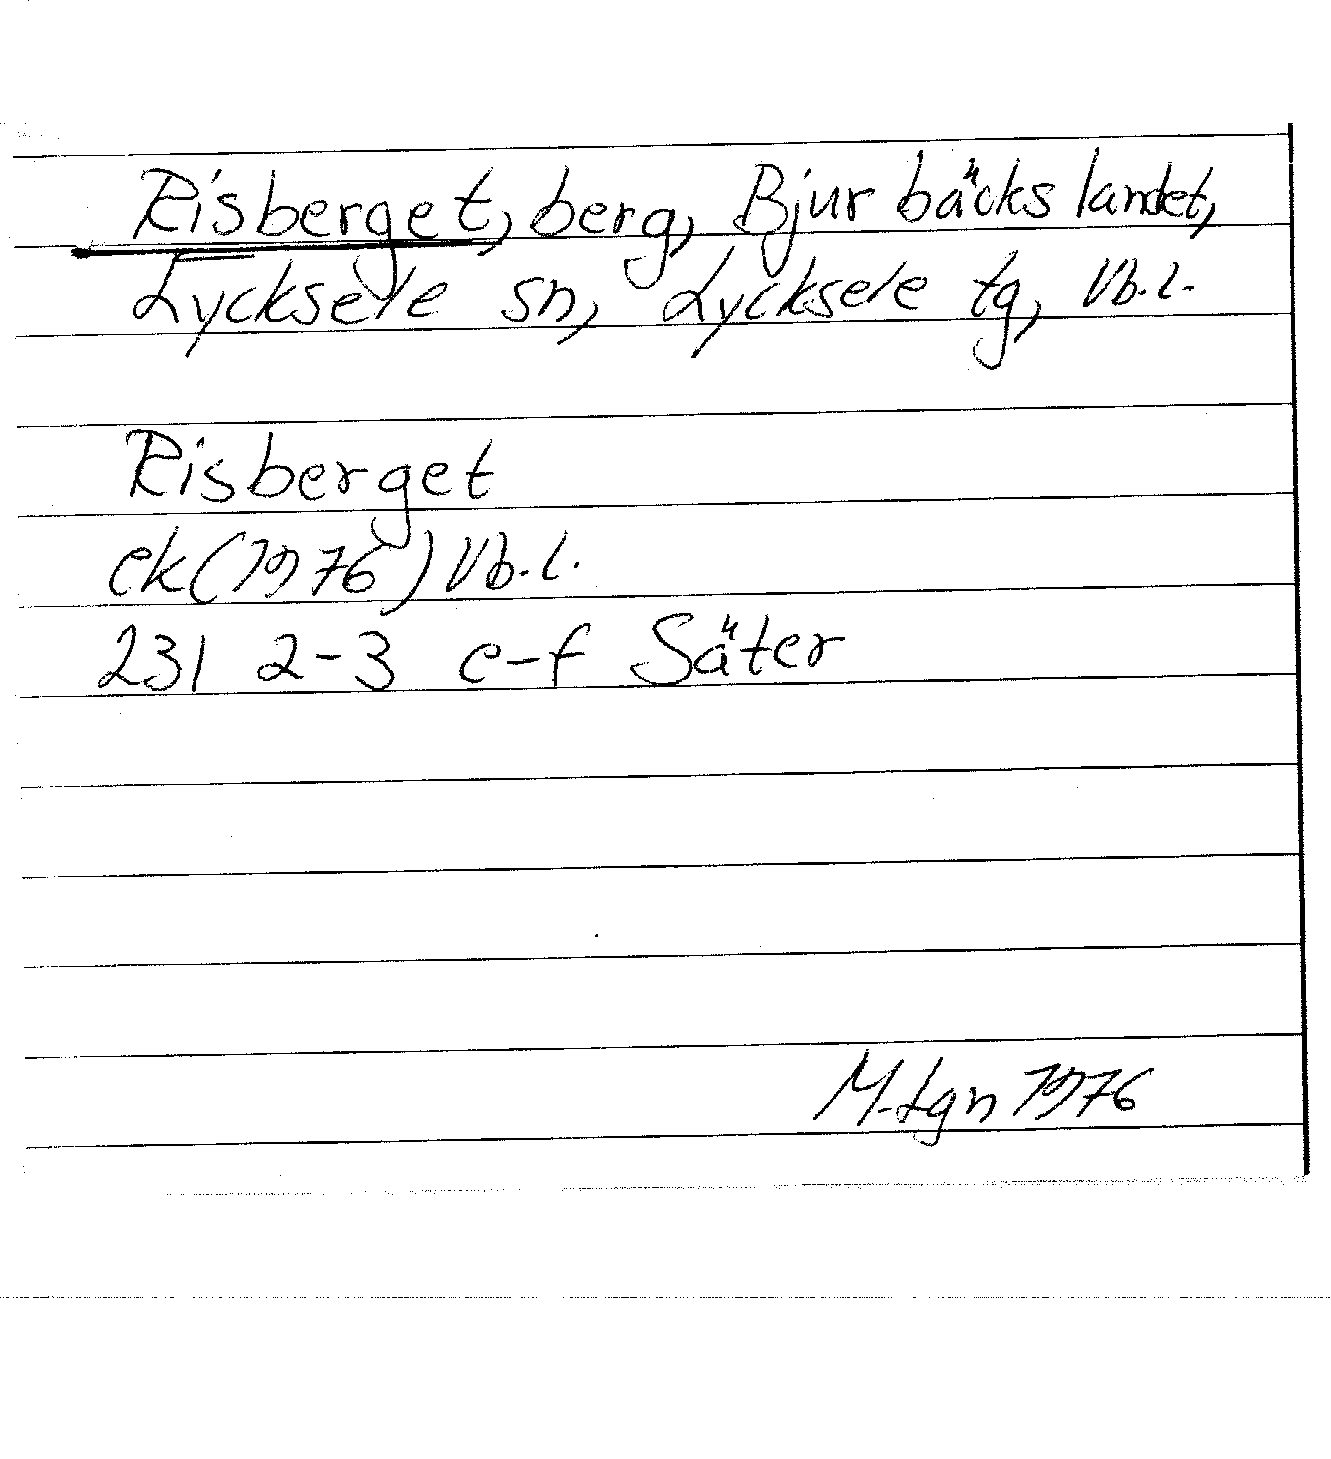 Risberget, berg, Bjurbäckslandet,
Lycksele sn, Lycksele tg, Vb.l.
Risberget
ek(1976) Vb.l.
231 2-3 e-f Säter
M-tgn 1976